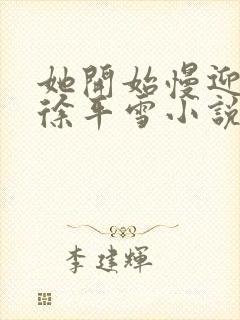 她開始慢迎
徐平雪小說
李建輝